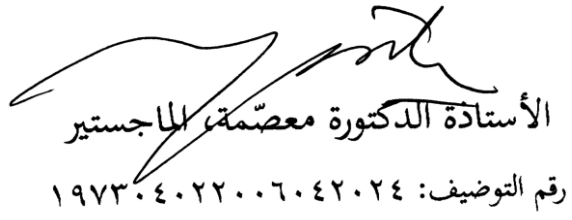 الأستاذة الدكتورة معصّمة، الماجستير
رقم التوضيف: ١٩٧٣٠٤٠٢٢٠٠٦٠٤٢٠٢٤